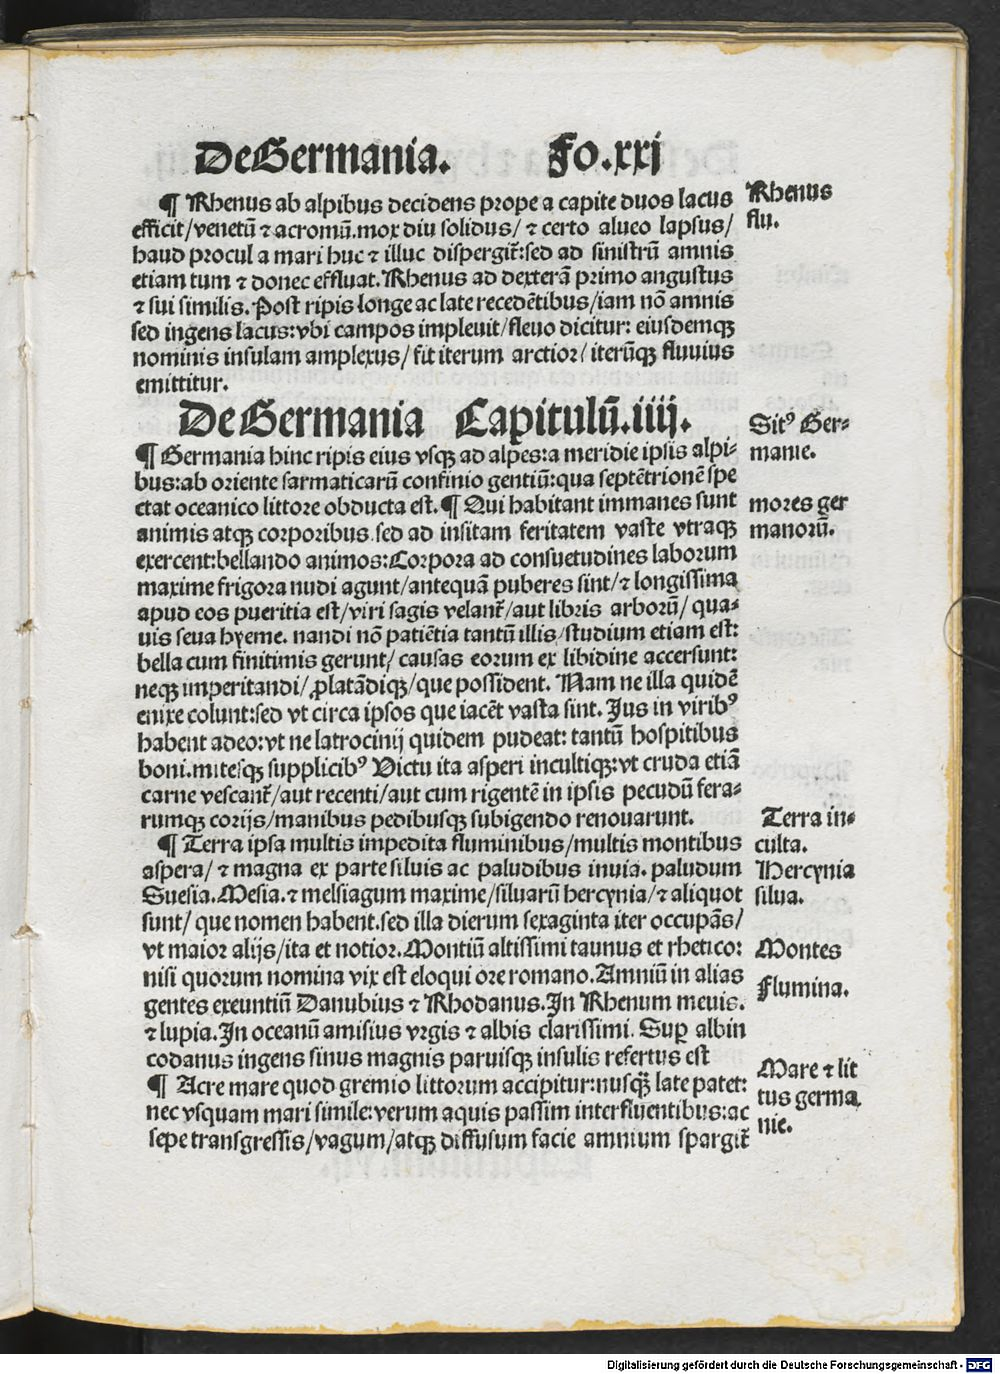 De Germania. Fo.xxi
¶ Rhenus ab alpibus decidens prope a capite duos lacus
efficit/venetū ⁊ acromū.mox diu solidus/ ⁊ certo alueo lapsus/
haud procul a mari huc ⁊ illuc dispergit᷑:sed ad sinistrū amnis
etiam tum ⁊ donec effluat.Rhenus ad dexterā primo angustus
⁊ sui similis.Post ripis longe ac late recedētibus/iam nō amnis
sed ingens lacus:vbi campos impleuit/fleuo dicitur: eiusdemqꝫ
nominis insulam amplexus/ fit iterum arctior/ iterūqꝫ fluuius
emittitur.
Rhenus
flu.
De Germania Capitulū.iiij.
¶ Germania hinc ripis eius vsqꝫ ad alpes:a meridie ipsis alpi-
bus:ab oriente sarmaticarū confinio gentiū:qua septētrionē spe
ctat oceanico littore obducta est.¶ Qui habitant immanes sunt
animis atqꝫ corporibus.sed ad insitam feritatem vaste vtraqꝫ
exercent:bellando animos:Corpora ad consuetudines laborum
maxime frigora nudi agunt/antequā puberes sint/⁊ longissima
apud eos pueritia est/viri sagis velant᷑/aut libris arborū/ qua-
uis seua hyeme. nandi nō patiētia tantū illis/studium etiam est:
bella cum finitimis gerunt/ causas eorum ex libidine accersunt:
neqꝫ imperitandi/ ꝓlatādiqꝫ/que possident. Nam ne illa quidē
enixe colunt:sed vt circa ipsos que iacēt vasta sint. Jus in viribꝰ
habent adeo:vt ne latrocinij quidem pudeat: tantū hospitibus
boni.mitesqꝫ supplicibꝰ Victu ita asperi incultiqꝫ:vt cruda etiā
carne vescant᷑/aut recenti/aut cum rigentē in ipsis pecudū fera-
rumqꝫ corijs/manibus pedibusqꝫ subigendo renouarunt.
¶ Terra ipsa multis impedita fluminibus/multis montibus
aspera/ ⁊ magna ex parte siluis ac paludibus inuia. paludum
Suesia.Mesia.⁊ melsiagum maxime/siluarū hercynia/⁊ aliquot
sunt/ que nomen habent.sed illa dierum sexaginta iter occupās/
vt maior alijs/ita et notior.Montiū altissimi taunus et rhetico:
nisi quorum nomina vix est eloqui ore romano.Amniū in alias
gentes exeuntiū Danubius ⁊ Rhodanus.In Rhenum meuis.
⁊ lupia.In oceanū amisius vrgis ⁊ albis clarissimi. Suꝑ albin
codanus ingens sinus magnis paruisqꝫ insulis refertus est
¶ Acre mare quod gremio littorum accipitur:nusqꝫ̄ late patet:
nec vsquam mari simile:verum aquis passim interfluentibus:ac
sepe transgressis/vagum/atqꝫ diffusum facie amnium spargit᷑
Sitꝰ Ger-
manie.
mores ger
manorū.
Terra in-
culta.
Hercynia
silua.
Montes
Flumina.
Mare ⁊ lit
tus germa
nie.
Digitalisierung gefördert durch die Deutsche Forschungsgemeinschaft - DFG